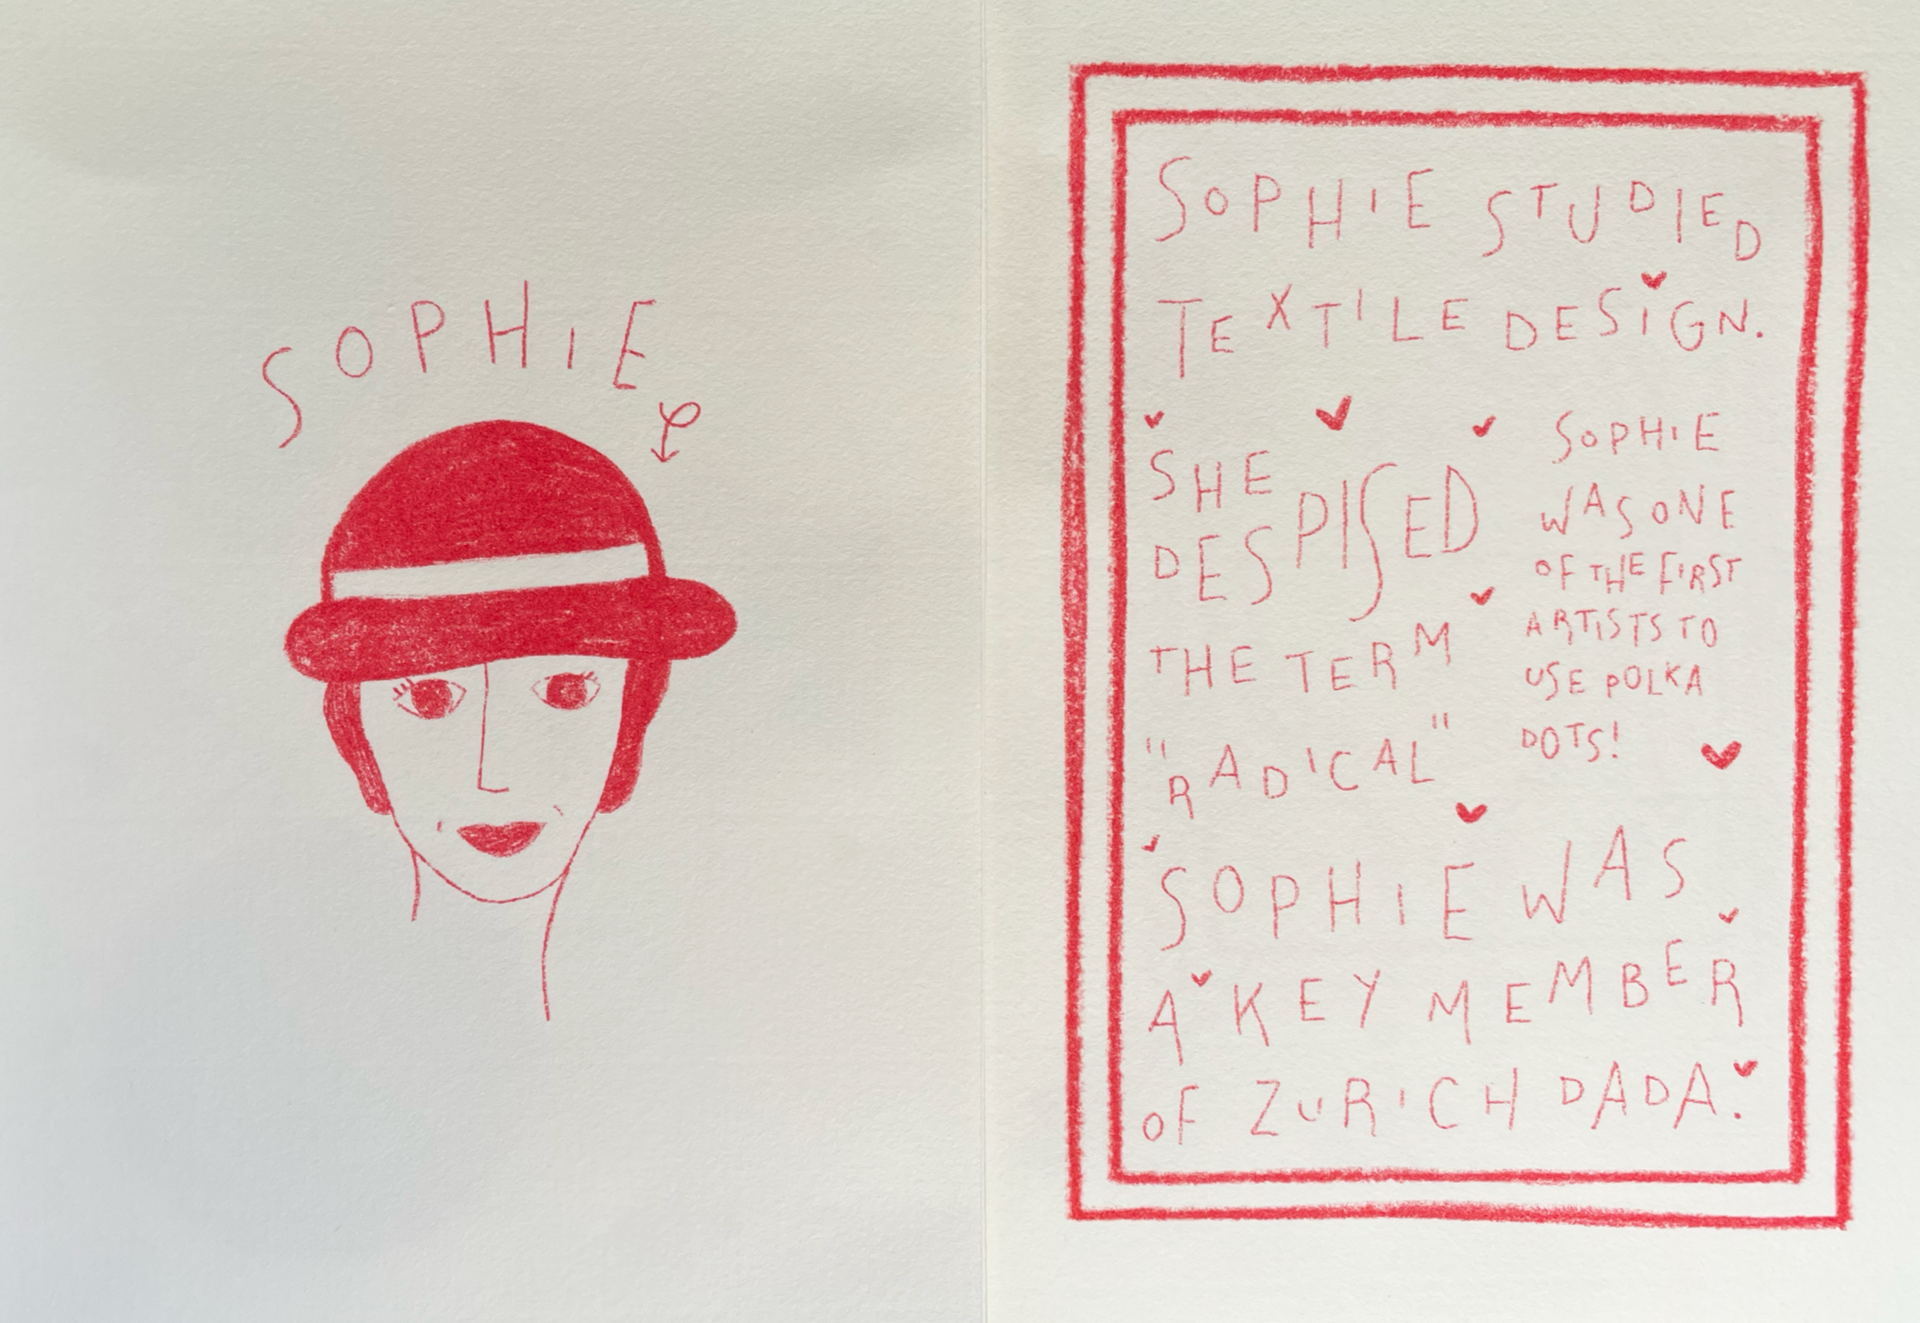 SOPHIE
SOPHIE STUDIED
TEXTILE DESIGN.
SHE
DESPISED
THE TERM
"RADICAL"
SOPHIE
WAS ONE
OF THE FIRST
ARTISTS TO
USE POLKA
DOTS!
SOPHIE WAS
A KEY MEMBER
OF ZURICH DADA.